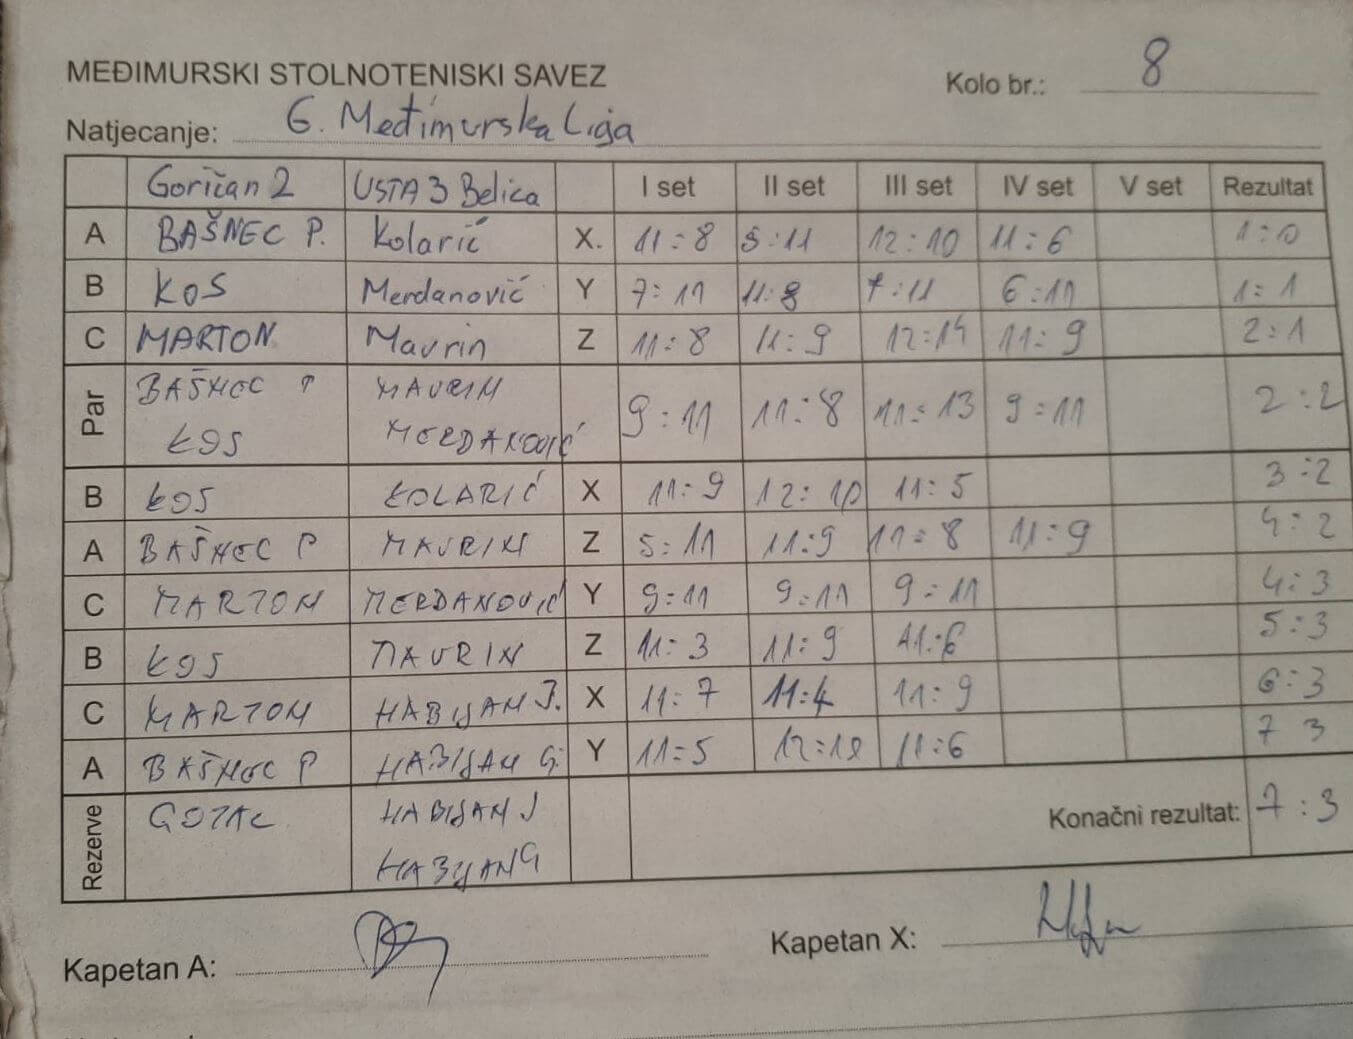 MEĐIMURSKI STOLNOTENISKI SAVEZ
Kolo br.: 8
Natjecanje: 6. Međimurska Liga
Goričan 2 USTA 3 Belica I set II set III set IV set V set Rezultat
A BAŠNEC P. Kolarić X. 11:8 5:11 12:10 11:6 1:0
B KOS Merdanović Y 7:11 11:8 7:11 6:11 1:1
C MARTON Mavrin Z 11:8 11:9 12:14 11:9 2:1
Par BAŠNEC P MAVRIN 9:11 11:8 11:13 9:11 2:2
KOS MERDANOVIĆ
B KOS KOLARIĆ X 11:9 12:10 11:5 3:2
A BAŠNEC P MAVRIN Z 5:11 11:9 11:8 11:9 4:2
C MARTON MERDANOVIĆ Y 9:11 9:11 9:11 4:3
B KOS MAVRIN Z 11:3 11:9 11:6 5:3
C MARTON HABIJAN J. X 11:7 11:4 11:9 6:3
A BAŠNEC P HABIJAN G. Y 11:5 12:10 11:6 7 3
Rezerve GOTAL HABIJAN J Konačni rezultat: 7:3
HABIJAN G
Kapetan A:
Kapetan X: